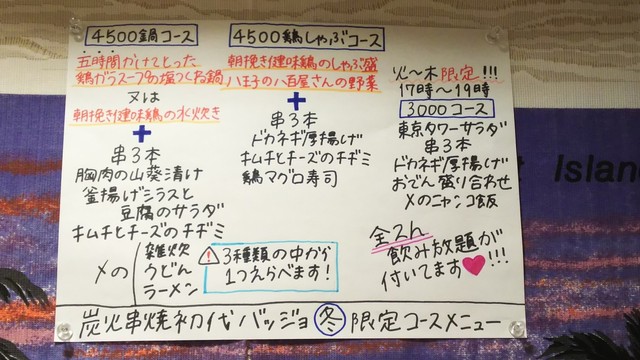 4500鍋コース
五時間かけてとった
鶏ガラスープの塩つくね鍋
又は
朝挽き健味鶏の水炊き
+
串3本
胸肉の山葵漬け
釜揚げシラスと
豆腐のサラダ
キムチとチーズのチヂミ
〆の
雑炊
うどん
ラーメン
! 3種類の中から
1つえらべます!
4500鶏しゃぶコース
朝挽き健味鶏のしゃぶ盛
八王子の八百屋さんの野菜
+
串3本
ドカネギ厚揚げ
キムチとチーズのチヂミ
鶏マグロ寿司
火〜木限定!!!
17時〜19時
3000コース
東京タワーサラダ
串3本
ドカネギ厚揚げ
おでん盛り合わせ
〆のニャンコ飯
全コース
飲み放題が
付いてます♥!!!
炭火串焼初代バッジョ冬限定コースメニュー
Island